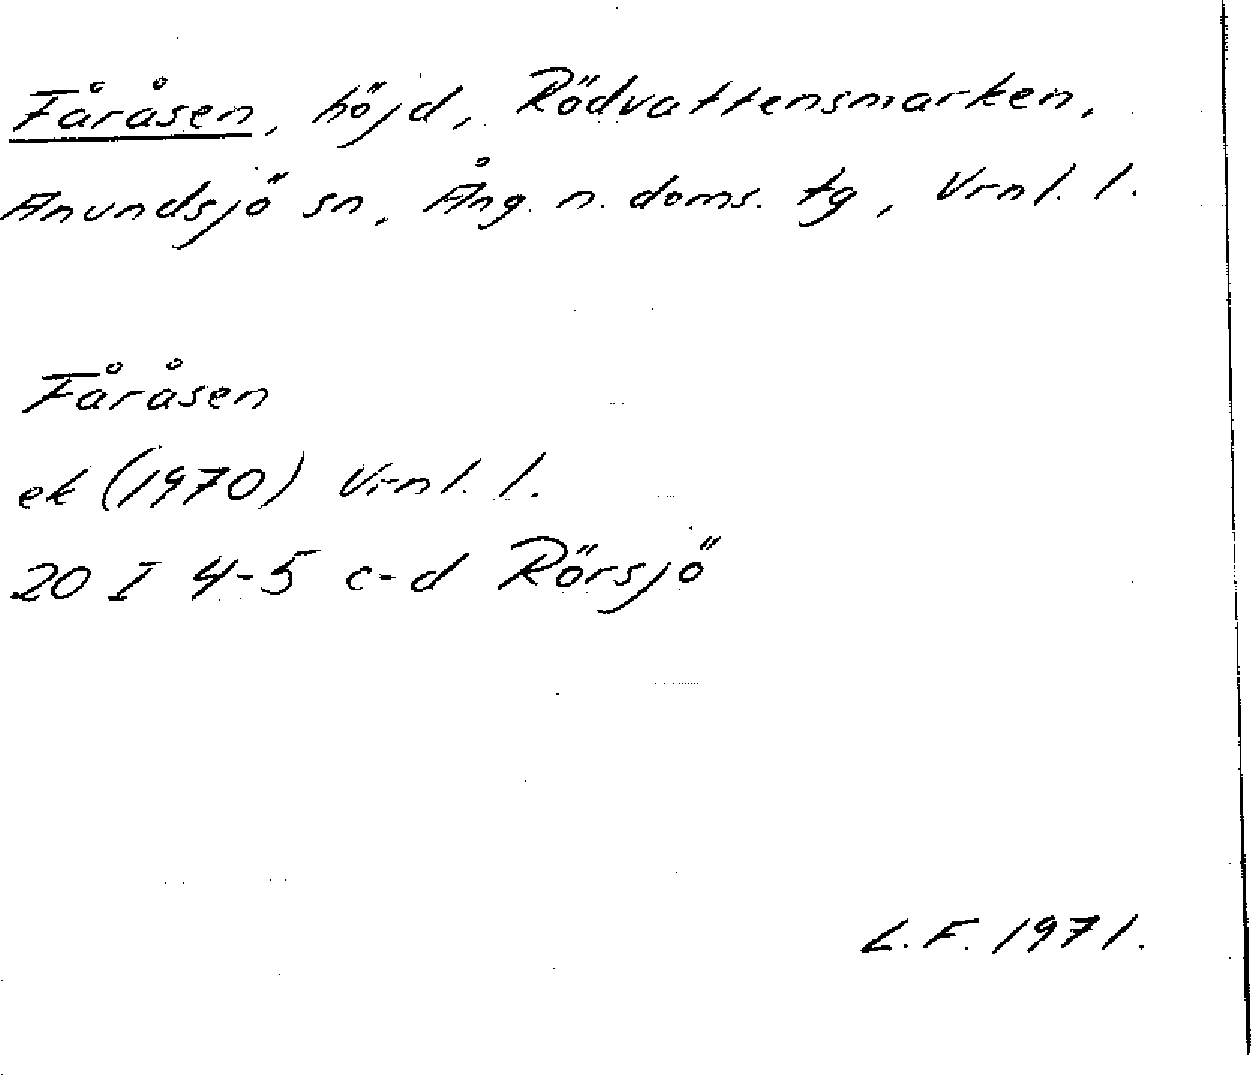 Fåråsen, höjd, Rödvattensmarken,
Anundsjö sn, Ång. n. doms. tg, Vrnl. l.
Fåråsen
ek (1970) Vrnl. l.
20 I 4-5 c-d Rörsjö
L.F. 1971.